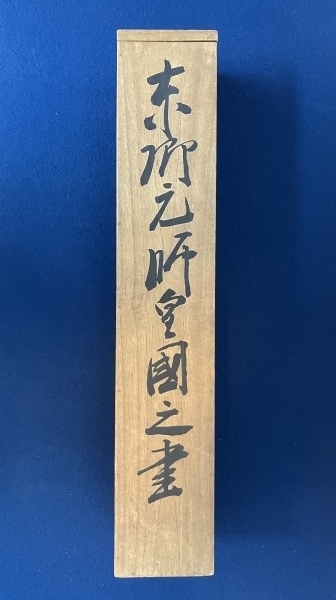 東郷元帥皇國之書